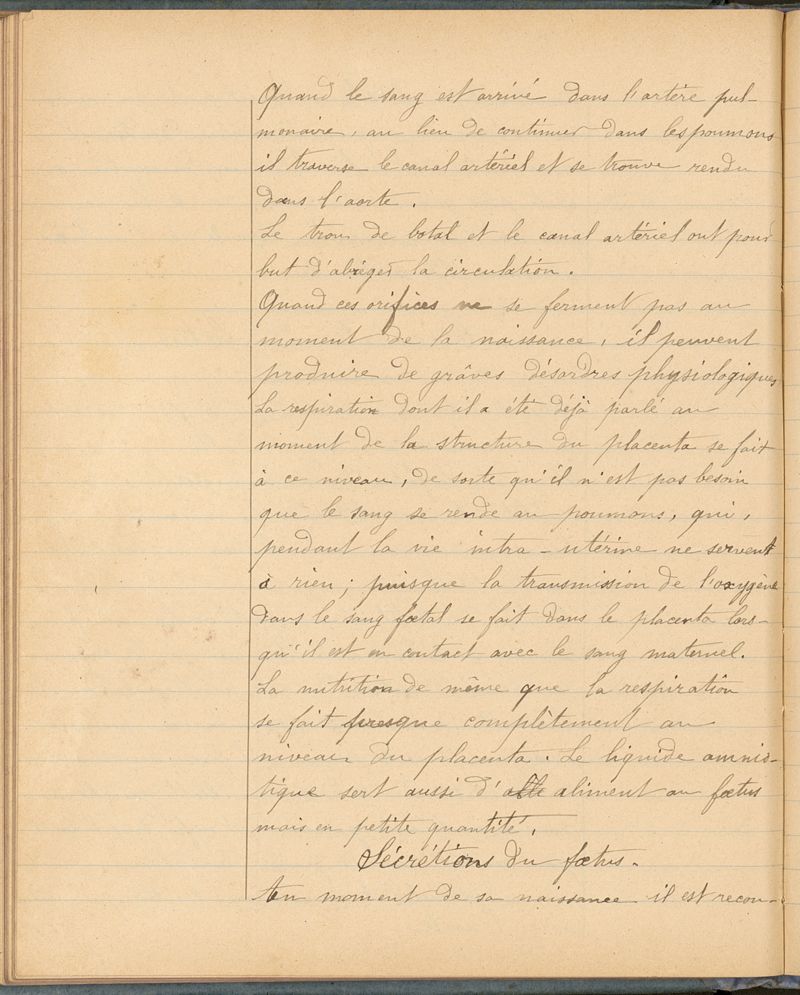 Quand le sang est arrivé dans l'artère pul-
monaire, au lieu de continuer dans les poumons
il traverse le canal artériel et se trouve rendu
dans l'aorte.
Le trou de botal et le canal artériel ont pour
but d'abréger la circulation.
Quand ces orifices ne se ferment pas au
moment de la naissance, il peuvent
produire de grâves désordres physiologiques
La respiration dont il a été déjà parlé au
moment de la structure du placenta se fait
à ce niveau, de sorte qu'il n'est pas besoin
que le sang se rende au poumons, qui,
pendant la vie intra-utérine ne servent
à rien; puisque la transmission de l'oxygène
dans le sang fœtal se fait dans le placenta lors-
qu'il est en contact avec le sang maternel.
La nutrition de même que la respiration
se fait presque complètement au
niveau du placenta. Le liquide amnio-
tique sert aussi d' aliment au fœtus
mais en petite quantité.
Sécrétions du fœtus.
Au moment de sa naissance il est recou-